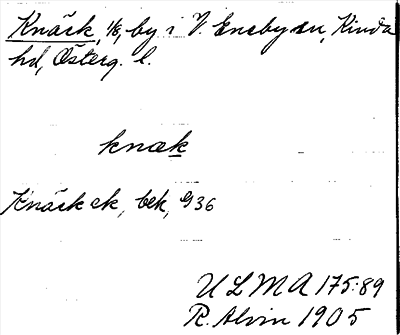 Knäck, 1/8, by i V. Eneby sn, Kinda
hd, Österg. l.
knæk
Knäck ek, bek, 936
ULMA 175:89
R. Alvin 1905